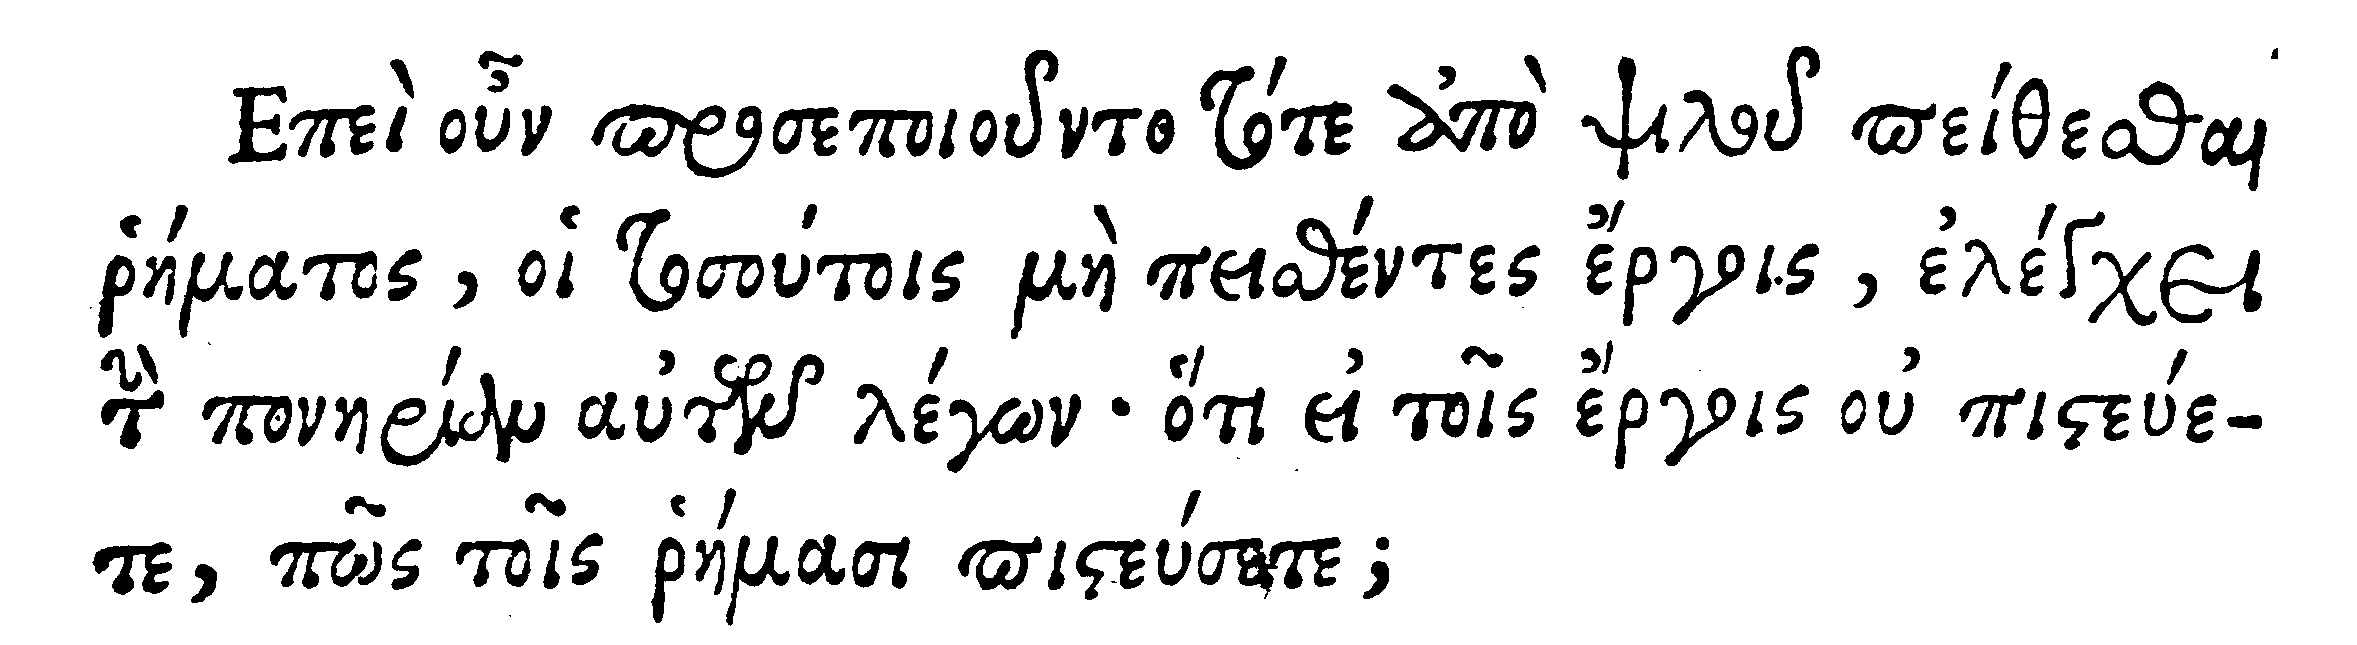 Ἐπεὶ οὖν προσεποιοῦντο τότε ἀπὸ ψιλοῦ πείθεσθαι
ῥήματος, οἱ τοσούτοις μὴ πεισθέντες ἔργοις, ἐλέγχει
τὴν πονηρίαν αὐτῶν λέγων· ὅτι εἰ τοῖς ἔργοις οὐ πιστεύε-
τε, πῶς τοῖς ῥήμασι πιστεύσετε;